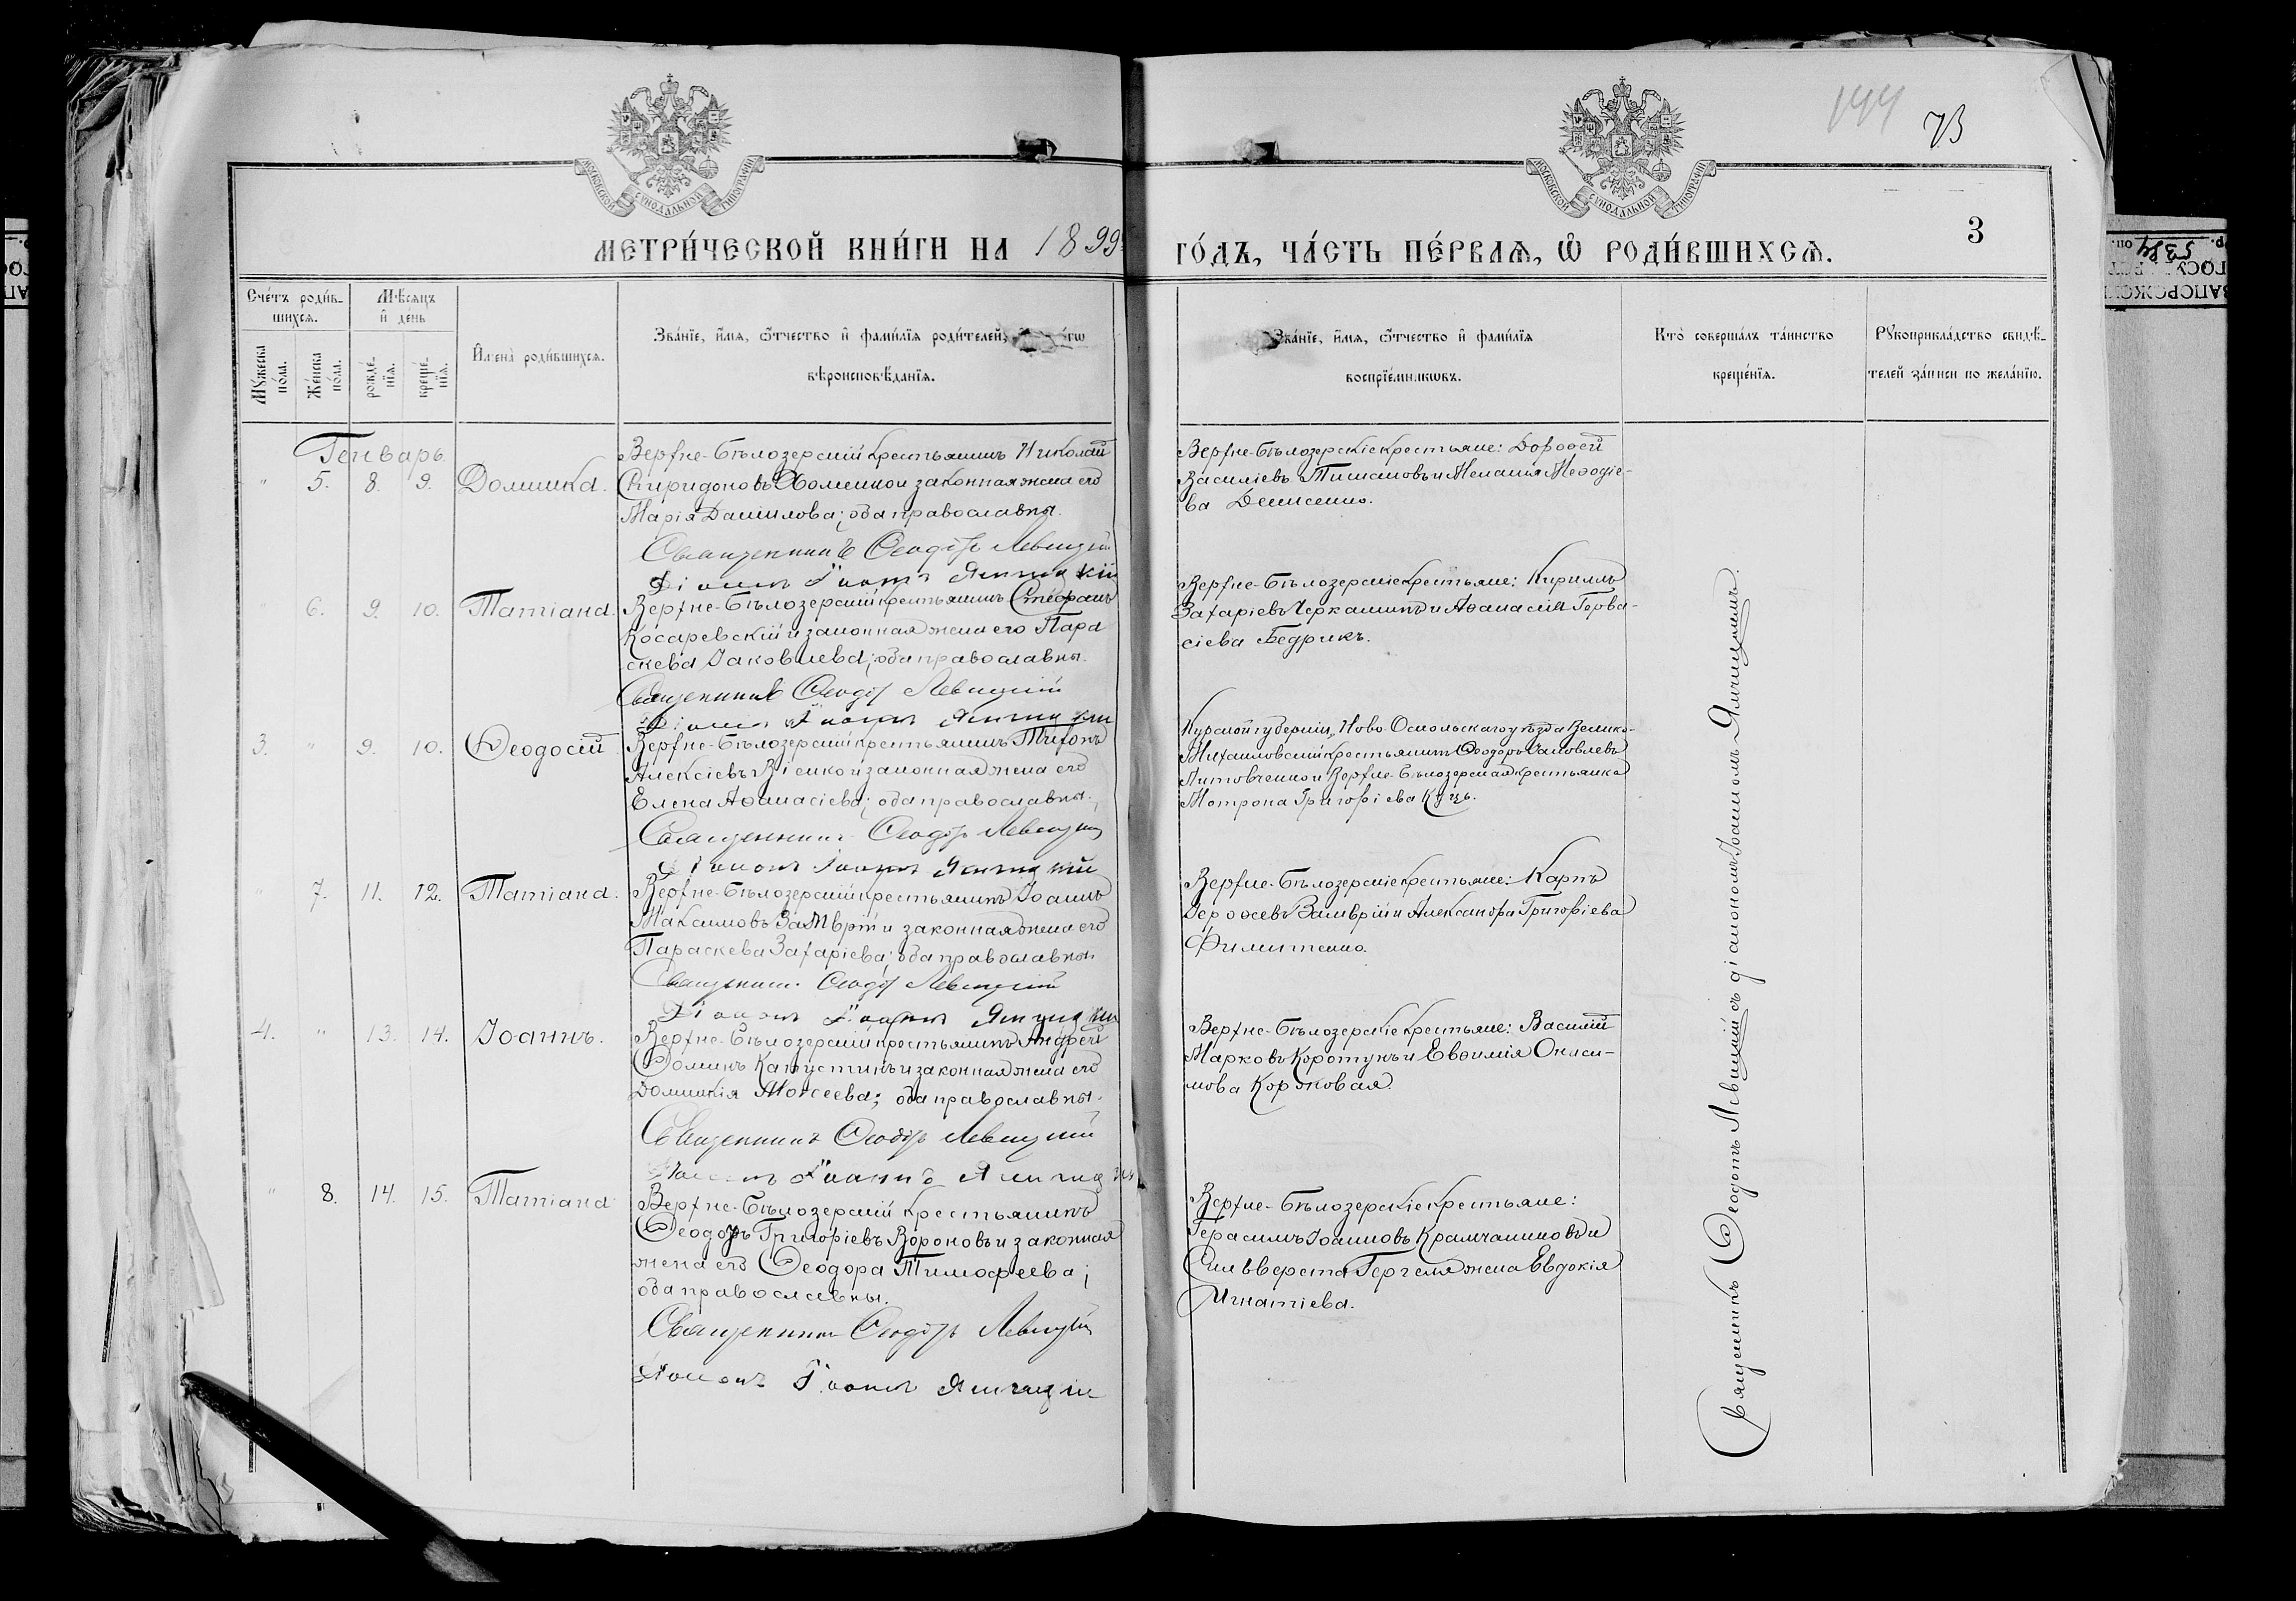 144
73
МОСКОВСКОЙ СѴНОДАЛЬНОЙ ТИПОГРАФІИ
МОСКОВСКОЙ СѴНОДАЛЬНОЙ ТИПОГРАФІИ
3
МЕТРИ́ЧЕСКОЙ КНИ́ГИ НА 1899
ГО́ДЪ, ЧА́СТЬ ПЕ́РВАѦ, Ѽ РОДИ́ВШИХСѦ.
Сче́тъ роди́в-
шихсѧ.
Мꙋжеска по́ла.
Же́нска по́ла.
Мѣ́сѧцъ и҆ де́нь
рожде́-
нїѧ.
креще́-
нїѧ.
И҆мена̀ роди́вшихсѧ.
Зва́нїе, и҆́мѧ, ѻ҆́тчество и҆ фами́лїѧ роди́телей,
вѣроисповѣ́данїѧ.
Зва́нїе, и҆́мѧ, ѻ҆́тчество и҆ фами́лїѧ
воспрїе́мникѡвъ.
Кто̀ соверша́лъ та́инство
креще́нїѧ.
Рꙋкоприкла́дство свидѣ́-
телей за́писи по жела́нїю.
Генварь.
" 5. 8. 9. Домника.
Верхне-Бѣлозерскій крестьянинъ Николай
Спиридоновъ Хоменко и законная жена его
Марія Данилова; оба православны.
Священникъ Ѳеодоръ Левицкій
Діаконъ Іоаннъ Яничицкій
Верхне-Бѣлозерскіе крестьяне: Дороѳей
Василіевъ и Меланія Меѳодіе-
ва Денисенко.
" 6. 9. 10. Татіана.
Верхне-Бѣлозерскій крестьянинъ Стефанъ
Косаревскій и законная жена его Пара
скева Іаковлева; оба православны.
Священникъ Ѳеодоръ Левицкій
Діаконъ Іоаннъ Яничицкій
Верхне-Бѣлозерскіе крестьяне: Кириллъ
Захаріевъ Черкашинъ и Аѳанасія Герва-
сіева Бедрикъ.
3. " 9. 10. Ѳеодосій
Верхне-Бѣлозерскій крестьянинъ Трифонъ
Алексіевъ и законная жена его
Елена Аѳанасіева; оба православны.
Священникъ Ѳеодоръ Левицкій
Діаконъ Іоаннъ Яничицкій
Курской губерніи, Ново-Оскольскаго уѣзда Велико-
Михайловскій крестьянинъ Ѳеодоръ Іаковлевъ
Литовченко и Верхне-Бѣлозерская крестьянка
Мотрона Григоріева Куцъ.
" 7. 11. 12. Татіана.
Верхне-Бѣлозерскій крестьянинъ Іоаннъ
Максимовъ Замврій и законная жена его
Параскева Захаріева; оба православны.
Священникъ Ѳеодоръ Левицкій
Діаконъ Іоаннъ Яничицкій
Верхне-Бѣлозерскіе крестьяне: Карпъ
Дороѳеевъ Замврій и Александра Григоріева
4. " 13. 14. Іоаннъ.
Верхне-Бѣлозерскій крестьянинъ Андрей
Ѳоминъ Капустинъ и законная жена его
Домникія Моисеева; оба православны.
Священникъ Ѳеодоръ Левицкій
Діаконъ Іоаннъ Яничицкій
Верхне-Бѣлозерскіе крестьяне: Василій
Марковъ Коротунъ и Евѳимія Ониси-
мова Коржовая.
" 8. 14. 15. Татіана
Верхне-Бѣлозерскій крестьянинъ
Ѳеодоръ Григоріевъ Вороновъ и законная
жена его Ѳеодора Тимофеева;
оба православны.
Священникъ Ѳеодоръ Левицкій
Діаконъ Іоаннъ Яничицкій
Верхне-Бѣлозерскіе крестьяне:
Герасимъ Іоанновъ Крамчаниновъ и
Сильвестра жена Евдокія
Игнатіева.
Священникъ Ѳеодотъ Левицкій съ діакономъ Іоанномъ Яничицкимъ.